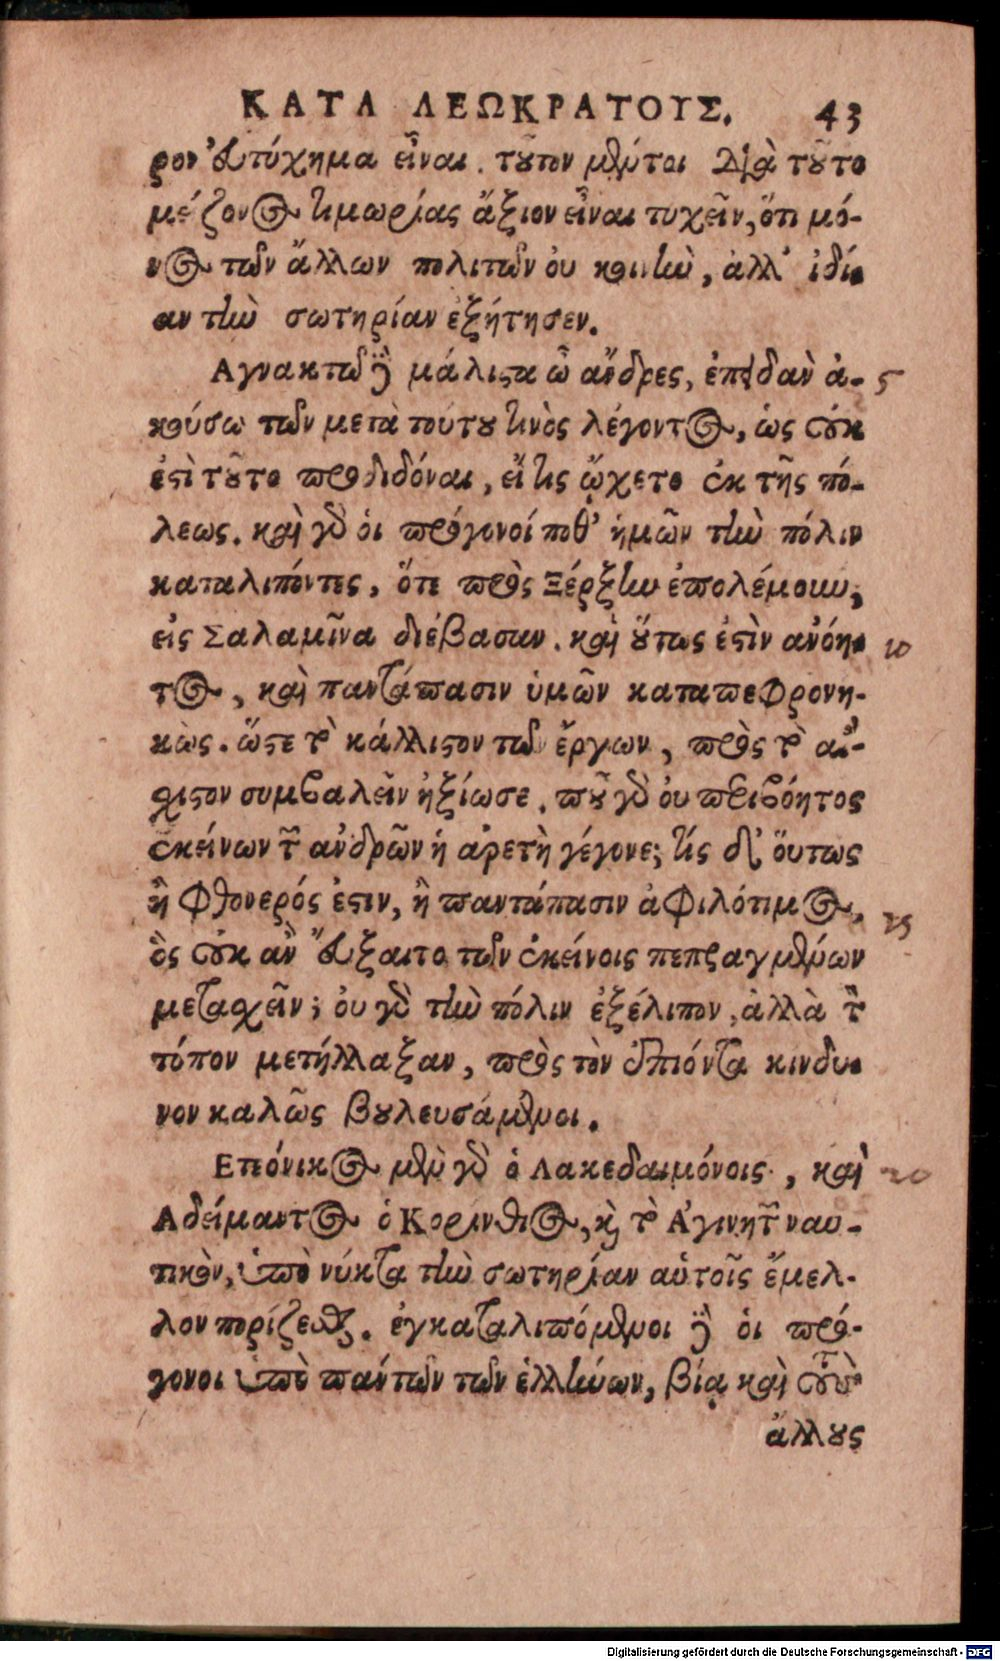 ΚΑΤΑ ΛΕΩΚΡΑΤΟΥΣ. 43
ρον εὐτύχημα εἶναι. τοῦτον μέντοι διὰ τοῦτο
μείζονος τιμωρίας ἄξιον εἶναι τυχεῖν, ὅτι μό-
νος τῶν ἄλλων πολιτῶν οὐ κοινὴν, ἀλλ' ἰδί-
αν τὴν σωτηρίαν ἐξήτησεν.
Αγνακτῶ δὲ μάλιστα ὦ ἄνδρες, ἐπειδὰν ἀ- 5
κούσω τῶν μετὰ τούτου τινὸς λέγοντος, ὡς οὐκ
ἐστὶ τοῦτο προδιδόναι, εἴ τις ᾤχετο ἐκ τῆς πό-
λεως. καὶ γὰρ οἱ πρόγονοί ποθ' ἡμῶν τὴν πόλιν
καταλιπόντες, ὅτε πρὸς Ξέρξην ἐπολέμουν,
εἰς Σαλαμῖνα διέβασαν. καὶ οὕτως ἐστὶν ἀνόη- 10
τος, καὶ παντάπασιν ὑμῶν καταπεφρονη-
κὼς. ὥστε τὸ κάλλιστον τῶν ἔργων, πρὸς τὸ αἴ-
σχιστον συμβαλεῖν ἠξίωσε. ποῦ γὰρ οὐ περιβόητος
ἐκείνων τῶν ἀνδρῶν ἡ ἀρετὴ γέγονε; τίς δ' οὕτως
ἢ φθονερός ἐστιν, ἢ παντάπασιν ἀφιλότιμος, 15
ὃς οὐκ ἂν εὔξαιτο τῶν ἐκείνοις πεπραγμένων
μετασχεῖν; οὐ γὰρ τὴν πόλιν ἐξέλιπον, ἀλλὰ τὸν
τόπον μετήλλαξαν, πρὸς τὸν ἐπιόντα κίνδυ-
νον καλῶς βουλευσάμενοι.
Ετεόνικος μὲν γὰρ ὁ Λακεδαιμόνοις, καὶ 20
Αδείμαντος ὁ Κορίνθιος, καὶ τὸ Αἰγινητῶν ναυ-
τικὸν, ὑπὸ νύκτα τὴν σωτηρίαν αὑτοῖς ἔμελ-
λον πορίζεσθαι. ἐγκαταλιπόμενοι δὲ οἱ πρό-
γονοι ὑπὸ πάντων τῶν ἑλλήνων, βίᾳ καὶ τοὺς
ἄλλους
Digitalisierung gefördert durch die Deutsche Forschungsgemeinschaft - DFG